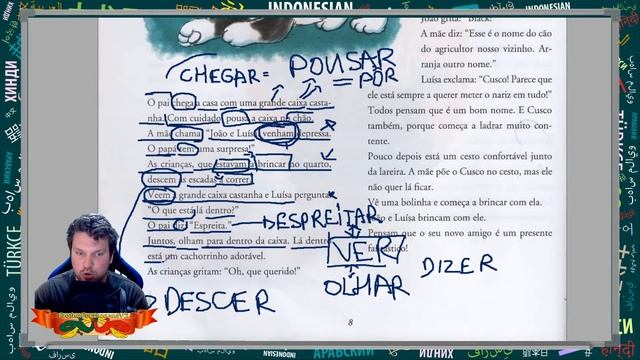 INDONESIAN
TÜRKCE
ХИНДИ
CHEGAR = POUSAR
= PÔR
O pai chega a casa com uma grande caixa casta-
nha. Com cuidado, pousa a caixa no chão.
A mãe chama: "João e Luísa, venham depressa.
O papá tem uma surpresa!"
As crianças, que estavam a brincar no quarto,
descem as escadas a correr.
Veem a grande caixa castanha e Luísa pergunta:
"O que está lá dentro?"
O pai diz: "Espreita."
Juntos, olham para dentro da caixa. Lá dentro
está um cachorrinho adorável.
As crianças gritam: "Oh, que querido!"
DESPREITAR
VER
OLHAR
DIZER
DESCER
João grita: "Black!"
A mãe diz: "Esse é o nome do cão
do agricultor nosso vizinho. Ar-
ranja outro nome."
Luísa exclama: "Cusco! Parece que
ele está sempre a querer meter o nariz em tudo!"
Todos pensam que é um bom nome. E Cusco
também, porque começa a ladrar muito con-
tente.
Pouco depois está um cesto confortável junto
da lareira. A mãe põe o Cusco no cesto, mas ele
não quer lá ficar.
Vê uma bolinha e começa a brincar com ela.
e Luísa brincam com ele.
Pensam que o seu novo amigo é um presente
fantástico!
8
INDONESIAN
АРАБСКИЙ
ХИНДИ